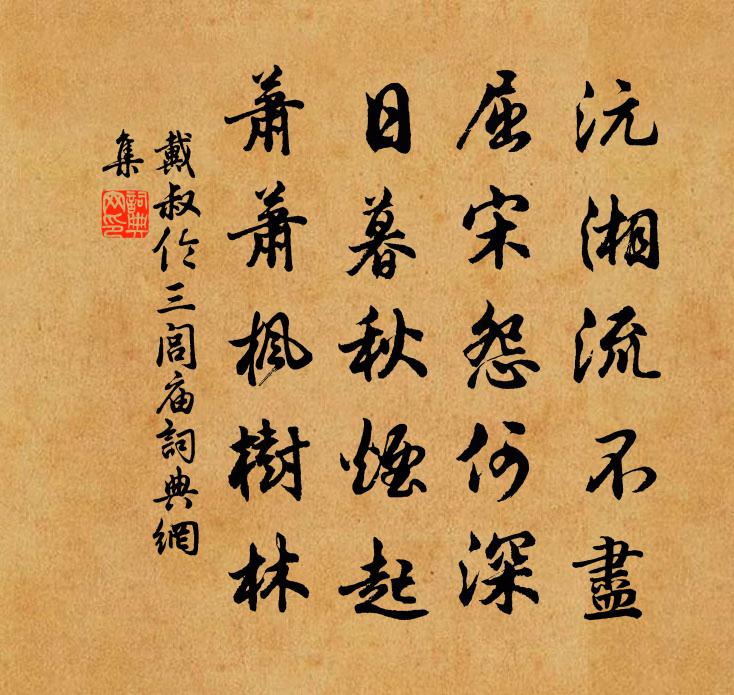 沅湘流不盡
屈宋怨何深
日暮秋煙起
蕭蕭楓樹林
戴叔倫三閭庙詞典網
集
詞典网印